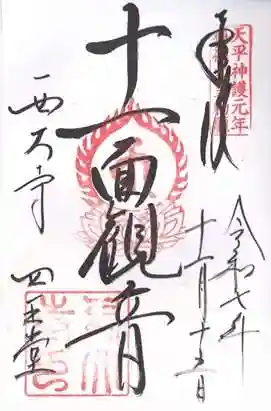 奉拝
天平神護元年
令和七年
十一月十五日
十一面観音
西大寺 四王堂